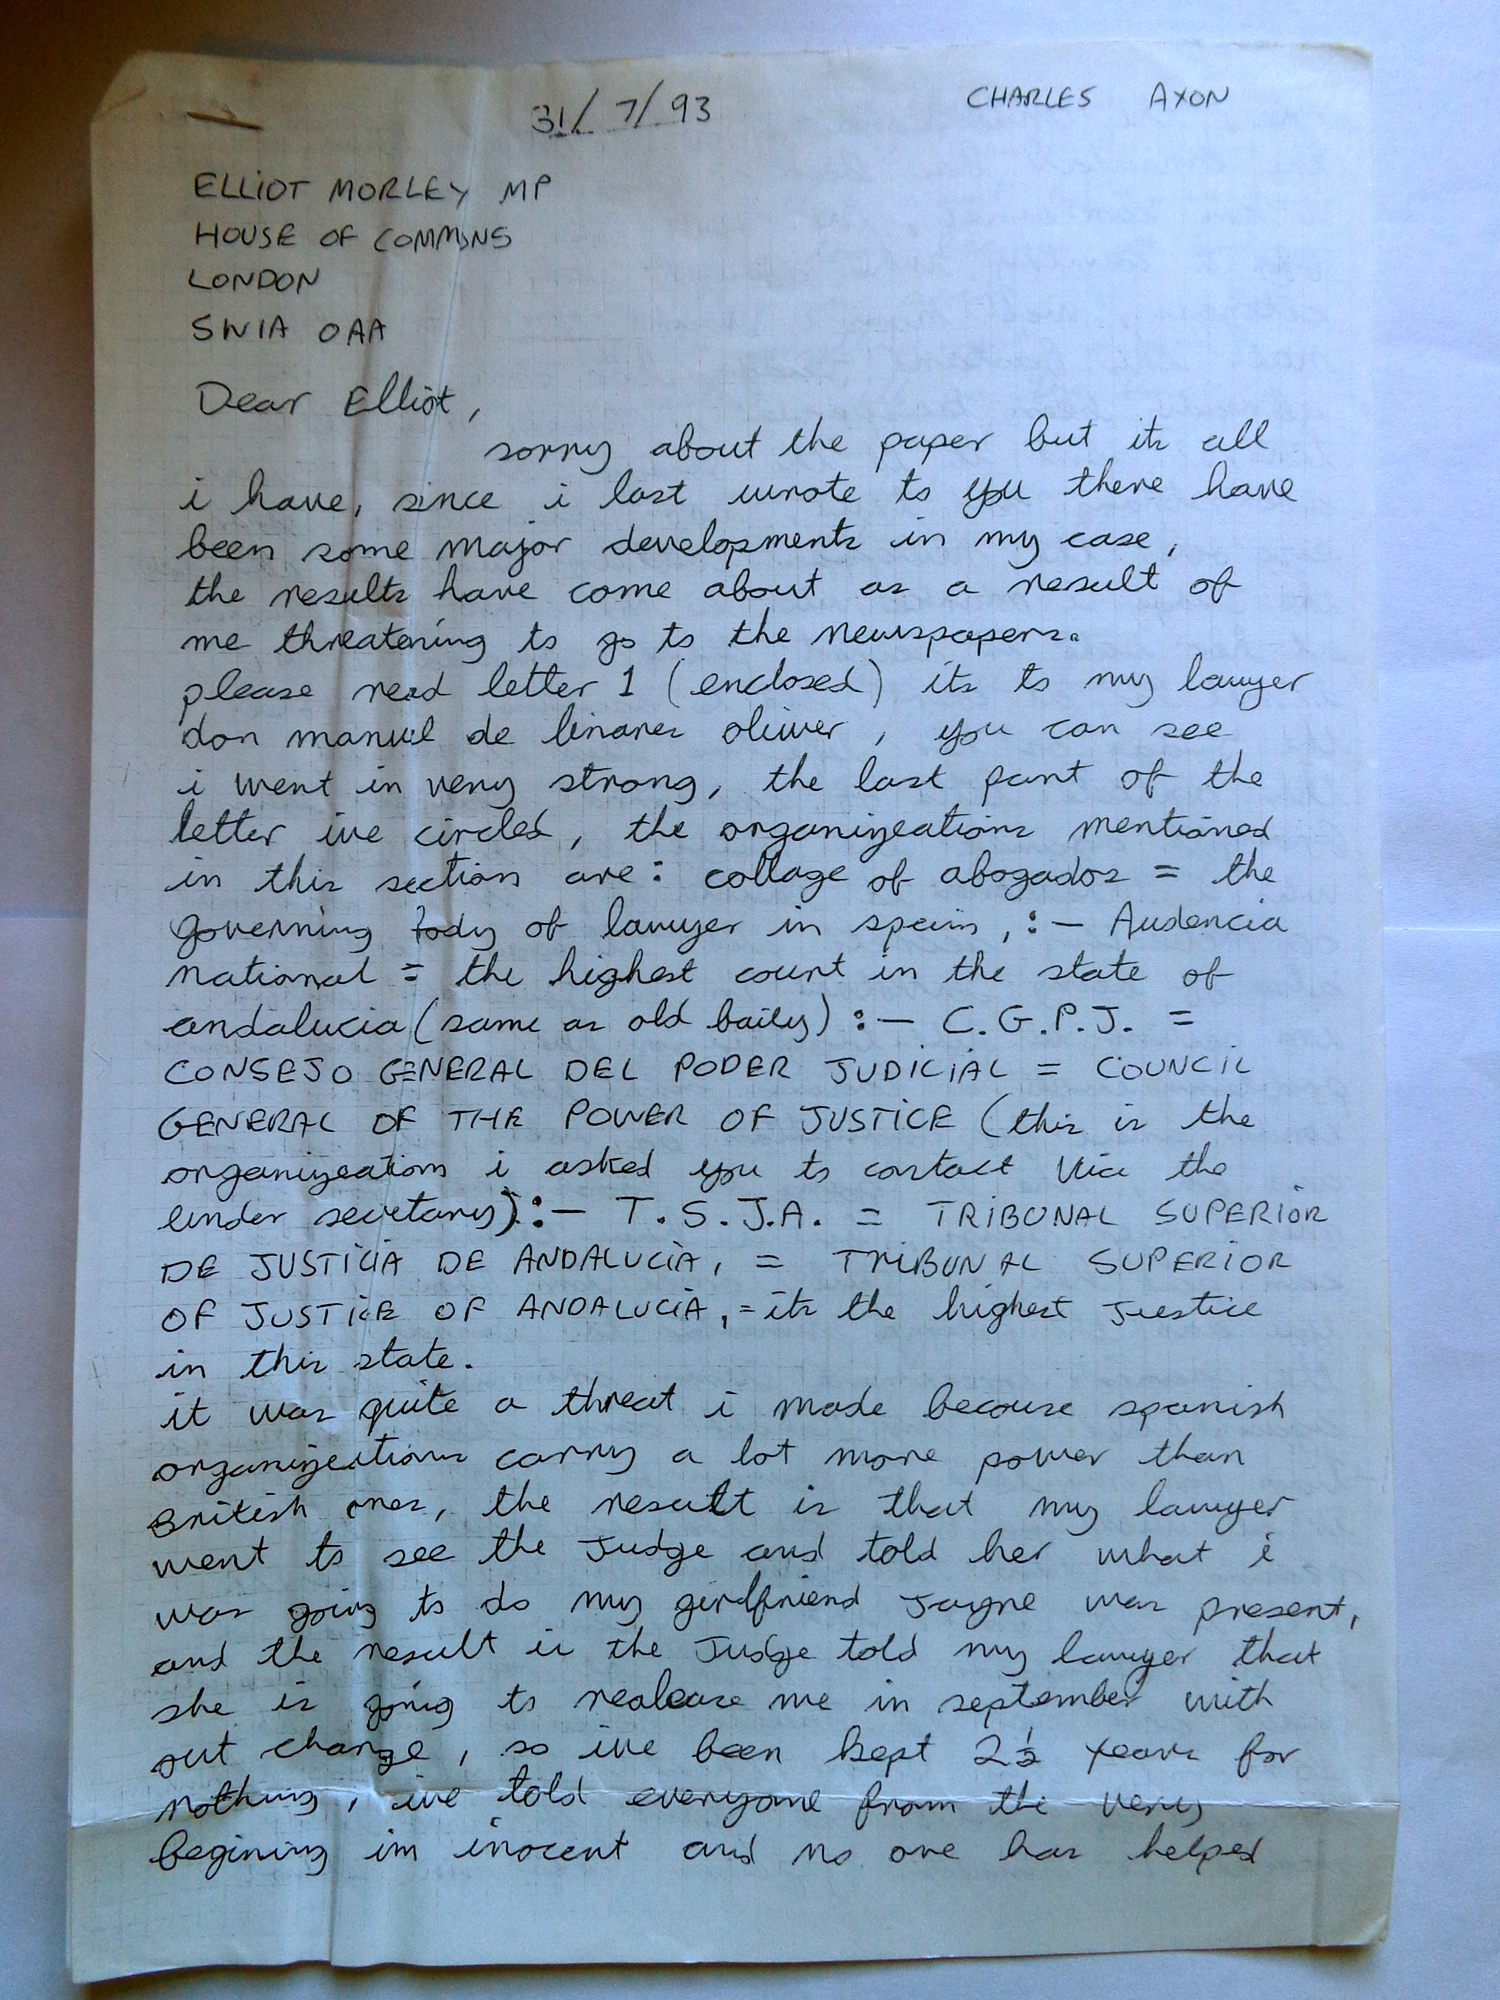 31/7/93
CHARLES AXON
ELLIOT MORLEY MP
HOUSE OF COMMONS
LONDON
SW1A OAA
Dear Elliot,
sorry about the paper but its all
i have, since i last wrote to you there have
been some major developments in my case,
the results have come about as a result of
me threatening to go to the newspapers.
please read letter 1 (enclosed) its to my lawyer
don manuel de linares oliver, you can see
i went in very strong, the last part of the
letter ive circled, the organizeations mentioned
in this section are: collage of abogados = the
governing body of lawyer in spain, :- Audencia
national = the highest court in the state of
andalucia (same as old baily) :- C.G.P.J. =
CONSEJO GENERAL DEL PODER JUDICIAL = COUNCIL
GENERAL OF THE POWER OF JUSTICE (this is the
organizeation i asked you to contact via the
under secretary) :- T.S.J.A. = TRIBUNAL SUPERIOR
DE JUSTICIA DE ANDALUCIA, = TRIBUNAL SUPERIOR
OF JUSTICE OF ANDALUCIA, = its the highest Justice
in this state.
it was quite a threat i made because spanish
organizeations carry a lot more power than
British ones, the result is that my lawyer
went to see the Judge and told her what i
was going to do my girlfriend Jayne was present,
and the result is the Judge told my lawyer that
she is going to realease me in september with
out charge, so ive been kept 2½ years for
nothing, ive told everyone from the very
begining im inocent and no one has helped